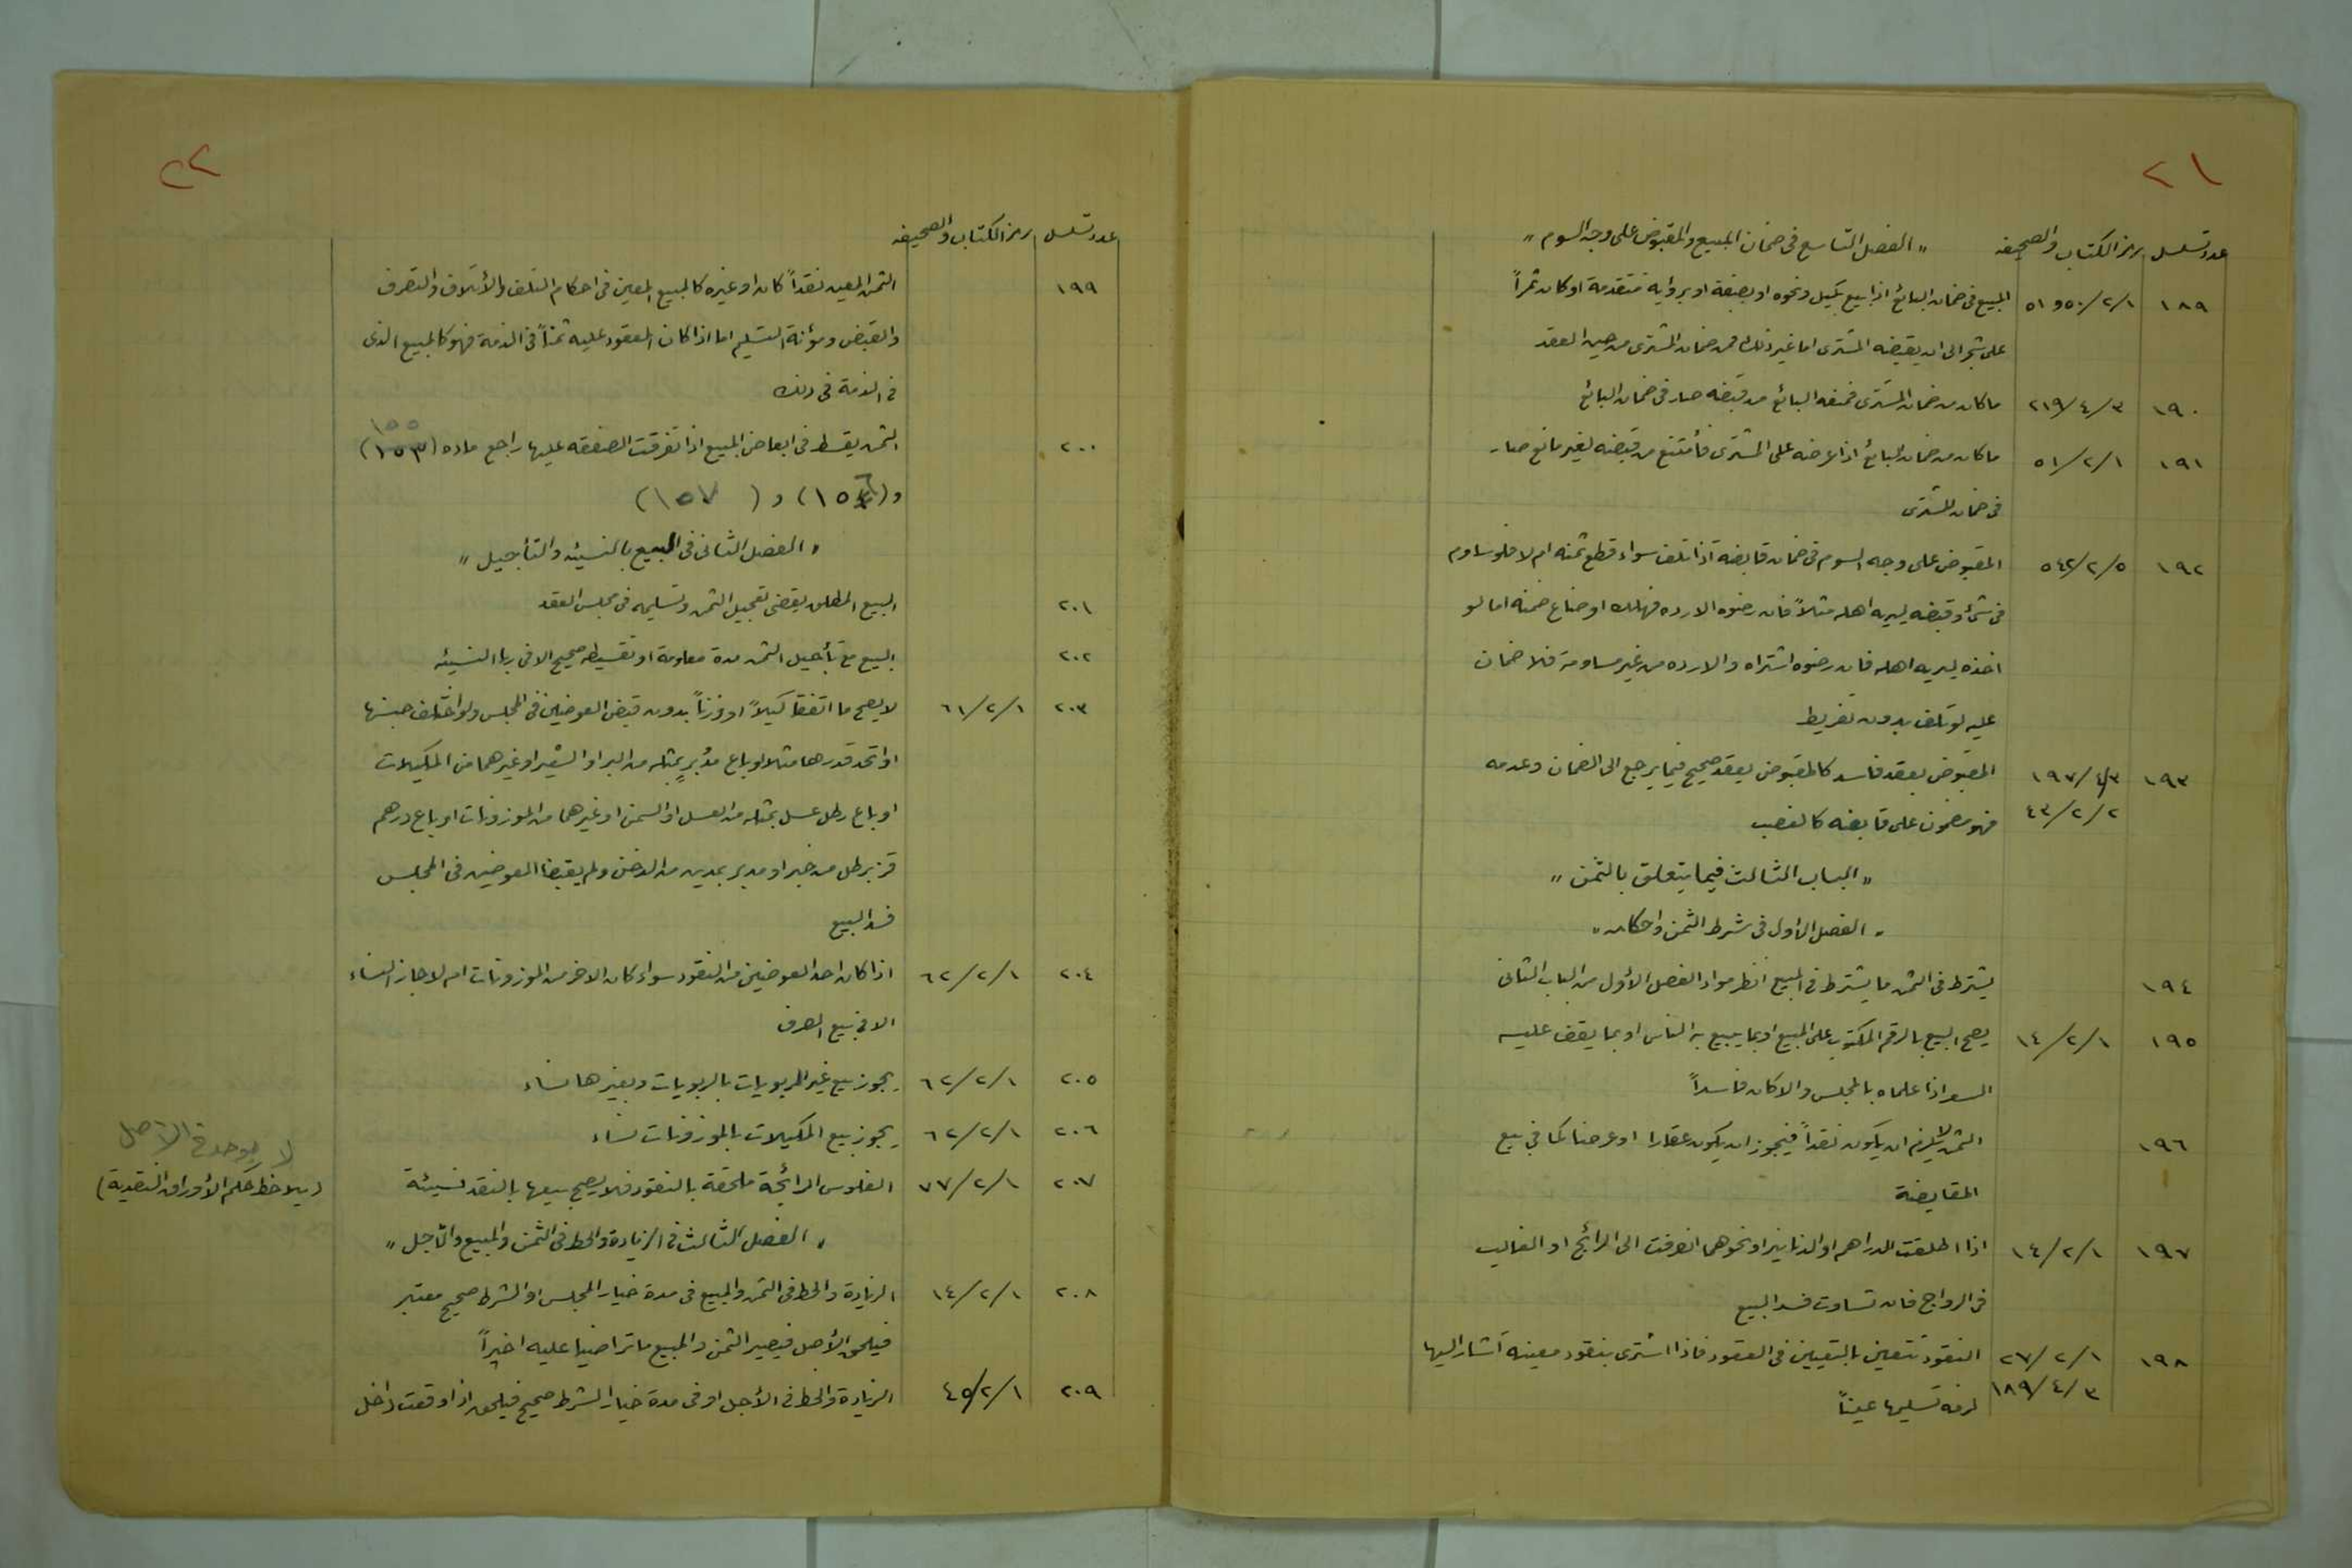 ٢١
عدد تسلسل رمز الكتاب والصحيفه "الفصل التاسع في ضمان المبيع والمقبوض على وجه السوم"
١٨٩ ٥١و٥٠/٢/١ المبيع في ضمان البائع اذا بيع بكيل ونحوه او بصفة او برؤاية متقدمة او كان ثمراً
على شجر الى ان يقبضه المشترى اما غير ذلك فمن ضمان المشترى من حين العقد
١٩٠ ٢١٩/٤/٣ ما كان من ضمان المشترى فمنعه البائع من قبضه صار في ضمان البائع
١٩١ ٥١/٢/١ ما كان من ضمان البائع اذا عرضه على المشترى فأمتنع من قبضه لغير مانع صار
في ضمان المشترى
١٩٢ ٥٤٢/٢/٥ المقبوض على وجه السوم في ضمان قابضه اذا تلف سواء قطع ثمنه ام لا فلو ساوم
في شئ وقبضه ليريه اهله مثلاً فان رضوه الا رده فهلك او ضاع ضمنه اما لو
اخذه ليريه اهله فان رضوه اشتراه والا رده من غير مساومة فلا ضمان
عليه لو تلف بدون تفريط
١٩٣ ١٩٧/٤/٣ المقبوض بعقد فاسد كالمقبوض بعقد صحيح فيما يرجع الى الضمان وعدمه
٤٣/٢/٢ فهو مضمون على قابضه كالغصب
"الباب الثالث فيما يتعلق بالثمن"
"الفصل الأول في شرط الثمن واحكامه"
١٩٤ يشترط في الثمن ما يشترط في المبيع انظر مواد الفصل الأول من الباب الثاني
١٩٥ ١٤/٢/١ يصح البيع بالرقم المكتوب على المبيع او بما يبيع به الناس او بما يقف عليه
السعر اذا علماه بالمجلس والا كان فاسداً
١٩٦ الثمن لا يلزم ان يكون نقداً فيجوز ان يكون عقارا او عرضا كما في بيع
المقايضة
١٩٧ ١٤/٢/١ اذا اطلقت الدراهم او الدنانير او نحوهما انصرفت الى الرائج او الغالب
في الرواج فان تساوت فسد البيع
١٩٨ ٢٧/٢/١ النقود تتعين بالتعيين في العقود فاذا اشترى بنقود معينة أشار اليها
١٨٩/٤/٣ لزمه تسليمها عيناً
٢٢
عدد تسلسل رمز الكتاب والصحيفه
١٩٩ الثمن المعين نقداً كان او غيره كالمبيع المعين في احكام التلف والأتلاف والتصرف
والقبض ومؤنة التسليم اما اذا كان المعقود عليه ثمناً في الذمة فهو كالمبيع الذى
في الذمة في ذلك
١٥٥
٢٠٠ الثمن يقسط في ابعاض المبيع اذا تفرقت الصفقه عليها راجع ماده (١٥٣)
و(١٥٦) و ( ١٥٧)
"الفصل الثاني في البيع بالنسيئه والتأجيل"
٢٠١ البيع المطلق يقضى تعجيل الثمن وتسليمه في مجلس العقد
٢٠٢ البيع مع تأجيل الثمن مدة معلومة او تقسيطه صحيح الا في ربا النسيئه
٢٠٣ ٦١/٢/١ لا يصح ما اتفقا كيلاً او وزناً بدون قبض العوضين في المجلس ولو اختلف جنسها
او اتحد قدرها مثلا لو باع مدُبرٍ بمثله من البر او الشعير او غيرهما من المكيلات
او باع رطل عسل بمثله من العسل او السمن او غيرهما من الموزونات او باع درهم
قز برطل من خبر او مد بر بمدين من الدخن ولم يقبضا العوضين في المجلس
فسد البيع
٢٠٤ ٦٢/٢/١ اذا كان احد العوضين من النقود سواء كان الاخر من الموزونات ام لا جاز النساء
الا في بيع الصرف
٢٠٥ ٦٢/٢/١ يجوز بيع غير الربويات بالربويات وبغيرها نساء
٢٠٦ ٦٢/٢/١ يجوز بيع المكيلات بالموزونات نساء
لا يوجد في الأصل
٢٠٧ ٧٧/٢/١ الفلوس الرائجة ملحقة بالنقود فلا يصح بيعها بالنقد نسيئة (يلاحظ حكم الأوراق النقدية)
"الفصل الثالث في الزيادة والحط في الثمن والمبيع والأجل"
٢٠٨ ١٤/٢/١ الزيادة والحط في الثمن والمبيع في مدة خيار المجلس او الشرط صحيح معتبر
فيلحق الأصل فيصير الثمن والمبيع ما تراضيا عليه اخيراً
٢٠٩ ٤٥/٢/١ الزيادة والحط في الأجل او في مدة خيار الشرط صحيح فيلحق اذا وقعت داخل